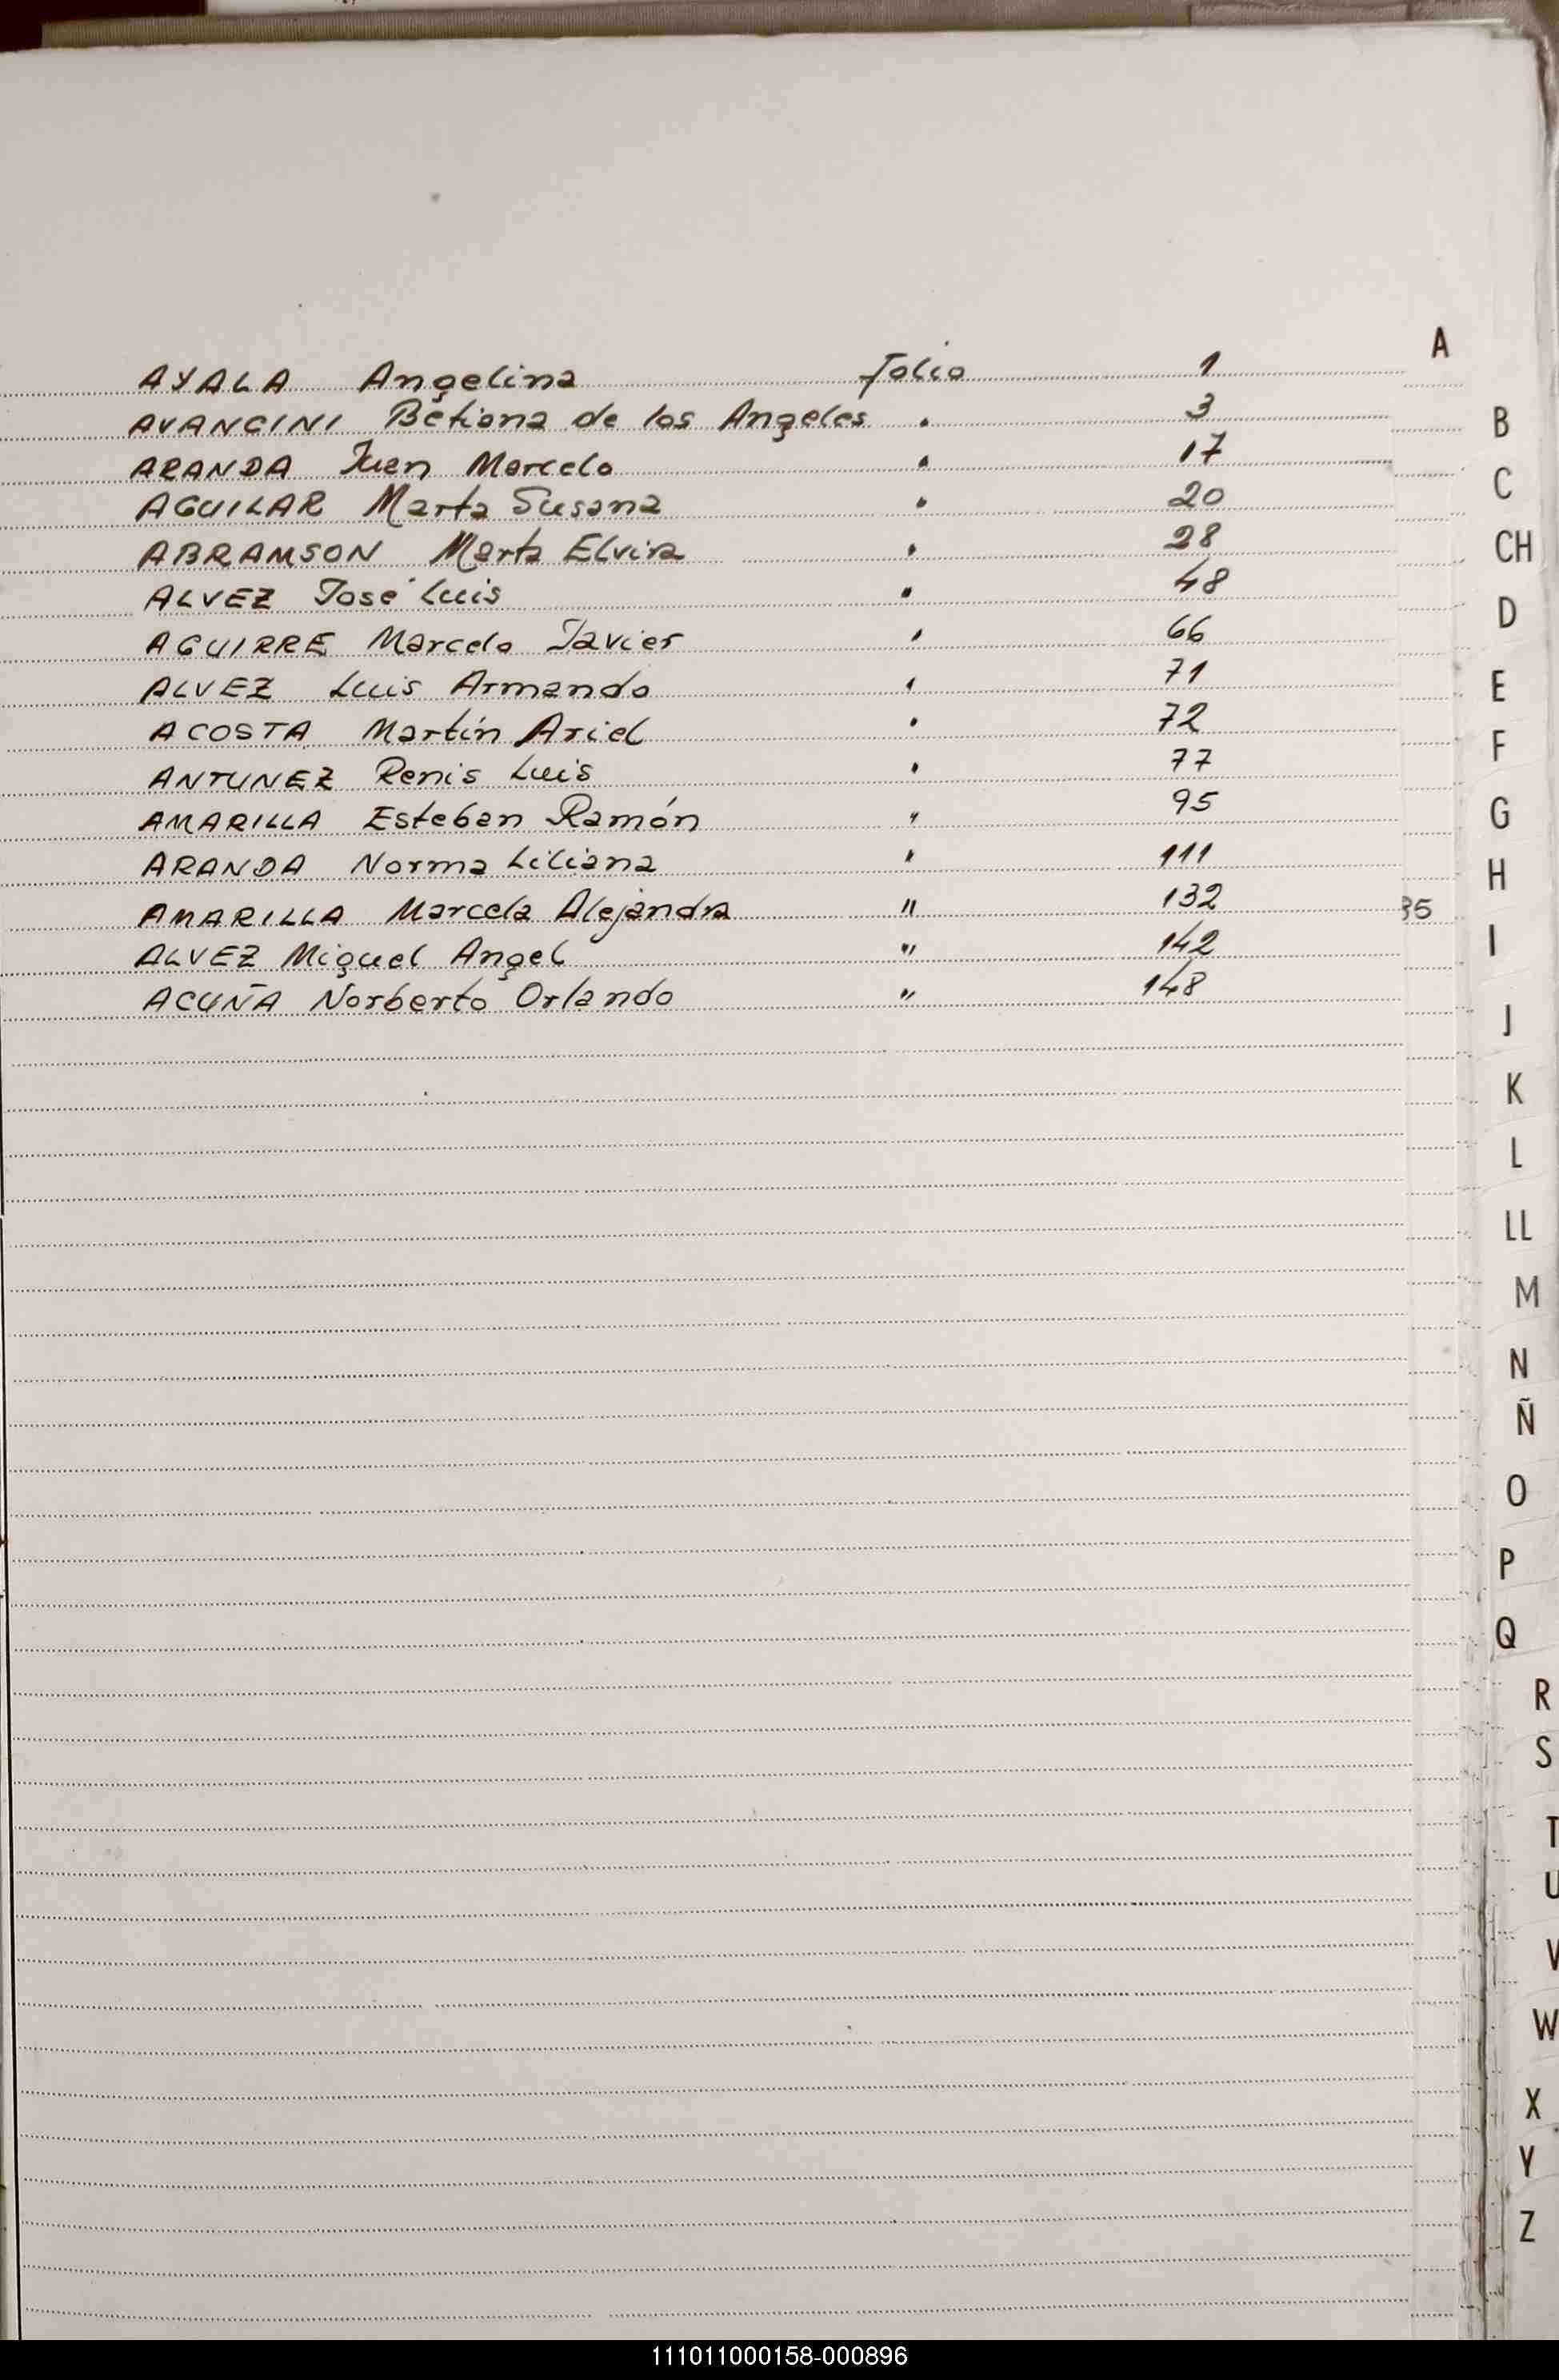 A
AYALA Angelina Folio 1
AVANCINI Betiana de los Angeles " 3
ARANDA Juan Marcelo " 17
AGUILAR Marta Susana " 20
ABRAMSON Marta Elvira " 28
ALVEZ José Luis " 48
AGUIRRE Marcelo Javier " 66
ALVEZ Luis Armando " 71
ACOSTA Martín Ariel " 72
ANTUNEZ Renis Luis " 77
AMARILLA Esteban Ramón " 95
ARANDA Norma Liliana " 111
AMARILLA Marcela Alejandra " 132
ALVEZ Miguel Angel " 142
ACUÑA Norberto Orlando " 148
B
C
CH
D
E
F
G
H
I
J
K
L
LL
M
N
Ñ
O
P
Q
R
S
T
U
V
W
X
Y
Z
111011000158-000896